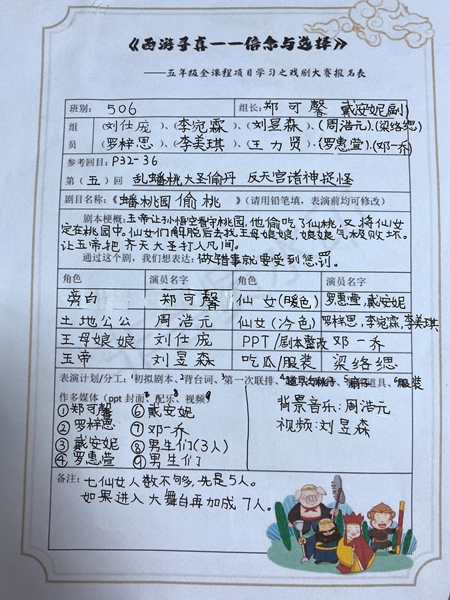 《西游寻真——信念与选择》
——五年级全课程项目学习之戏剧大赛报名表
班别： 506 组长： 郑可馨 戴安妮副
组员 (刘仕庞).(李宛霖).(刘昱森).(周浩元).(梁络缌)
(罗梓思).(李美琪). 王力贤).(罗惠萱).(邓一乔)
参考回目： P32-36
第（五）回 乱蟠桃大圣偷丹 反天宫诸神捉怪
剧目名称：《蟠桃园偷桃》（请用铅笔填，表演前均可修改）
剧本梗概： 玉帝让孙悟空看守桃园，他偷吃了仙桃，又将仙女
定在桃园中。仙女们解脱后去找王母娘娘，娘娘气极败坏。
让玉帝把齐天大圣打入凡间。
通过这个剧，我们想表达： 做错事就要受到惩罚。
角色 演员名字 角色 演员名字
旁白 郑可馨 仙女(暖色) 罗惠萱，戴安妮
土地公公 周浩元 仙女(冷色) 罗梓思，李宛霖，李美琪
王母娘娘 刘仕庞 PPT/剧本整改 邓一乔
玉帝 刘昱森 吃瓜/服装 梁络缌
表演计划/分工：¹初拟剧本、²背台词、³第一次联排、道具、⁶服装
作多媒体（ppt 封面、配乐、视频
①郑可馨 ⑥戴安妮 背景音乐：周浩元
②罗梓思 ⑦邓一乔 视频：刘昱森
③戴安妮 ⑧男生们(3人)
④罗惠萱 ⑨男生们
备注： 七仙女人数不够，先是5人。
如果进入大舞台再加成7人。